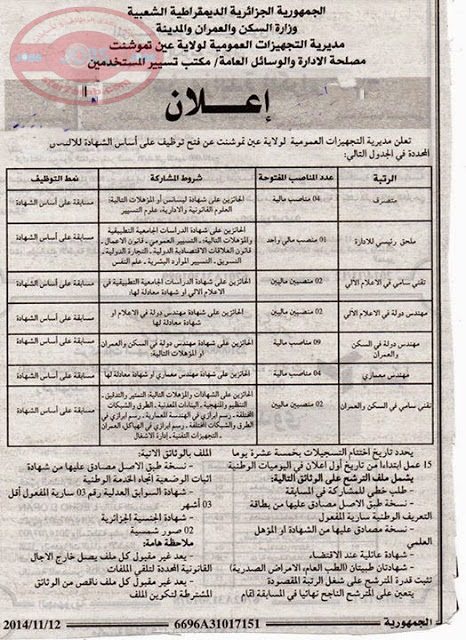 الجمهورية الجزائرية الديمقراطية الشعبية
وزارة السكن والعمران والمدينة
مديرية التجهيزات العمومية لولاية عين تموشنت
مصلحة الادارة والوسائل العامة/ مكتب تسيير المستخدمين
إعلان
تعلن مديرية التجهيزات العمومية لولاية عين تموشنت عن فتح توظيف على أساس الشهادة للالتحق
المحددة في الجدول التالي:
الرتبة
عدد المناصب المفتوحة
شروط المشاركة
نمط التوظيف
متصرف
04 مناصب مالية
الحائزين على شهادة ليسانس أو المؤهلات التالية:
العلوم القانونية والادارية، علوم التسيير
مسابقة على أساس الشهادة
ملحق رئيسي للادارة
01 منصب مالي واحد
الحائزين على شهادة الدراسات الجامعية التطبيقية
والمؤهلات التالية: التسيير العمومي - قانون الاعمال -
قانون العلاقات الاقتصادية الدولية - التجارة الدولية -
التسويق - التسيير الموارد البشرية - علم النفس
مسابقة على أساس الشهادة
تقني سامي في الاعلام الالي
02 منصبين ماليين
الحائزين على شهادة الدراسات الجامعية التطبيقية في
الاعلام الالي أو شهادة معادلة لها
مسابقة على أساس الشهادة
مهندس دولة في الاعلام الالي
02 منصبين ماليين
الحائزين على شهادة مهندس دولة في الاعلام او
شهادة معادلة لها
مسابقة على أساس الشهادة
مهندس دولة في السكن
والعمران
09 مناصب مالية
الحائزين على شهادة مهندس دولة في السكن والعمران
او المؤهلات التالية:
مسابقة على أساس الشهادة
مهندس معماري
04 مناصب مالية
الحائزين على شهادة مهندس معماري أو شهادة معادلة لها
مسابقة على أساس الشهادة
تقني سامي في السكن والعمران
02 منصبين ماليين
الحائزين على الشهادات والمؤهلات التالية: التستير والتدقيق -
التنظيم والمنهجية - البنايات المعدنية - الطرق والشبكات
المختلفة - رسم ابرازي في الهندسة المعمارية - رسم ابرازي في
الطرق والشبكات المختلفة - رسم ابرازي في الهياكل العمران
- التجهيزات التقنية - إدارة الاشغال
مسابقة على أساس الشهادة
يحدد تاريخ اختتام التسجيلات بخمسة عشرة يوما
15 عمل ابتداءا من تاريخ أول إعلان في اليوميات الوطنية
يشمل ملف الترشح على الوثائق التالية:
- طلب خطي للمشاركة في المسابقة
- نسخة طبق الاصل مصادق عليها من بطاقة
التعريف الوطنية سارية المفعول
- نسخة مصادق عليها من الشهادة او المؤهل
العلمي
- شهادة عائلية عند الاقتضاء
- شهادتان طبيتان (الطب العام، الامراض الصدرية)
تثبت قدرة المترشح على شغل الرتبة المقصودة
يتعين على المترشح الناجح نهائيا في المسابقة اتمام
الملف بالوثائق الاتية:
- نسخة طبق الاصل مصادق عليها من شهادة
اثبات الوضعية اتجاه الخدمة الوطنية
- شهادة السوابق العدلية رقم 03 سارية المفعول أقل
03 أشهر
- شهادة الجنسية الجزائرية
- 02 صور شمسية
ملاحظة هامة:
- يعد غير مقبول كل ملف يصل خارج الاجال
القانونية المحددة لتلقي الملفات
- يعد غير مقبول كل ملف ناقص من الوثائق
المشترطة لتكوين الملف
الجمهورية
6696A31017151
2014/11/12